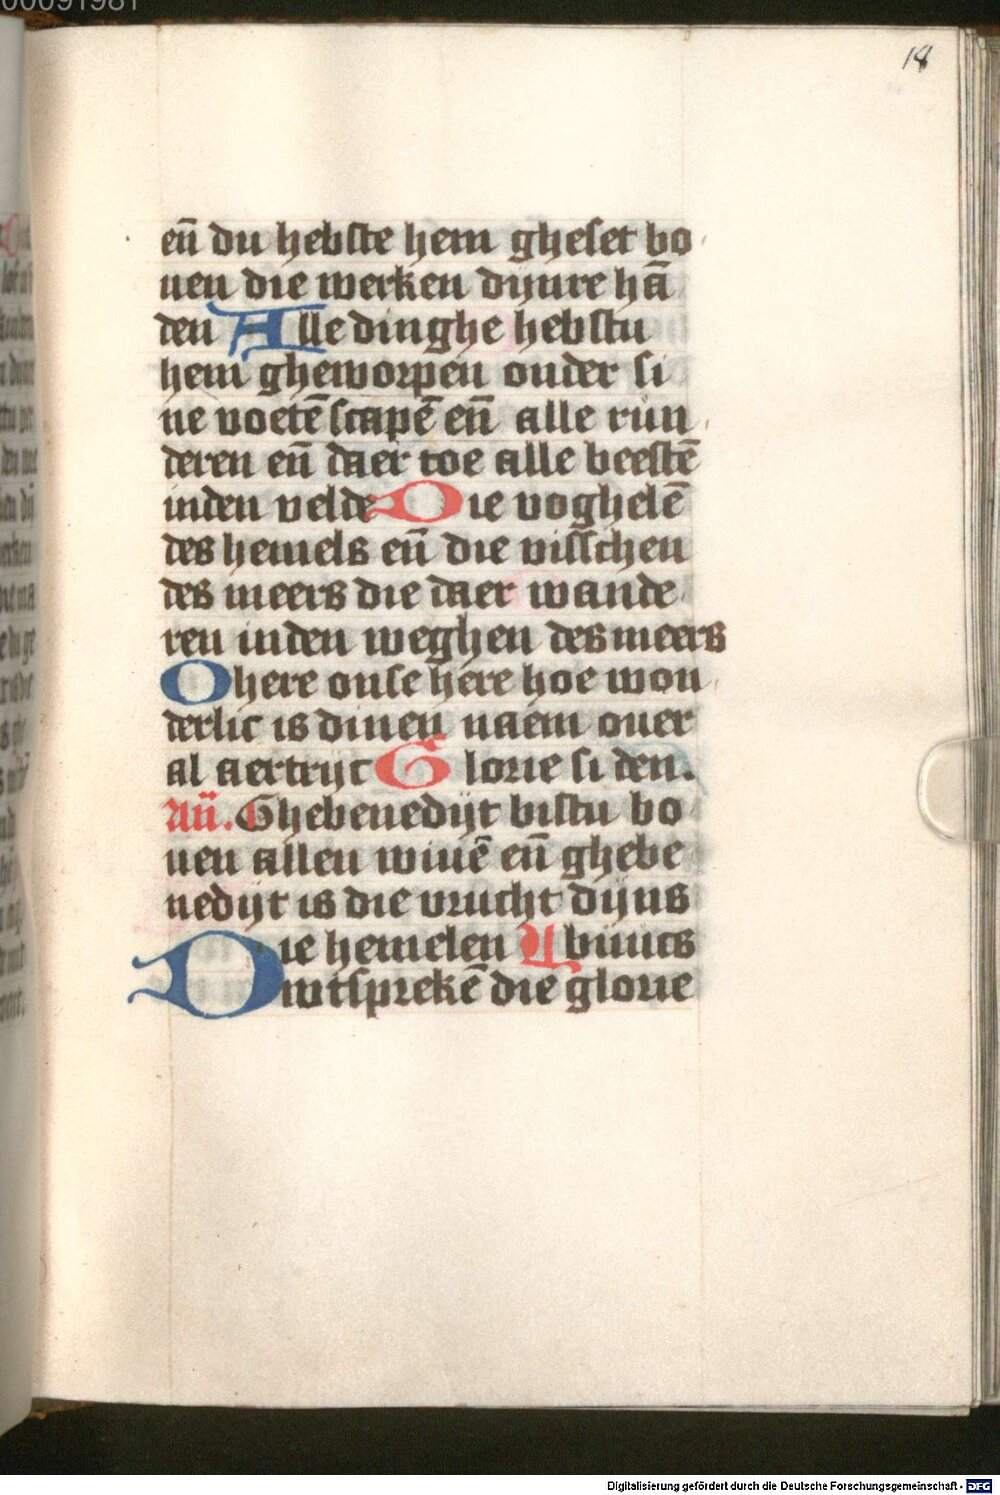 00091981
18
en̄ du hebste hem gheset bo
uen die werken dijnre hā
den Alle dinghe hebstu
hem gheworpen onder si
ne voetē scapē en̄ alle run
deren en̄ daer toe alle beestē
inden velde Die voghelē
des hemels en̄ die visschen
des meers die daer wande
ren inden weghen des meers
O here onse here hoe won
derlic is dinen naem ouer
al aertrijc Glorie si den.
An̄. Ghebenedijt bistu bo
uen allen wiuē en̄ ghebe
nedijt is die vrucht dijns
Die hemelen buucs
wtsprekē die glorie
Digitalisierung gefördert durch die Deutsche Forschungsgemeinschaft - DFG